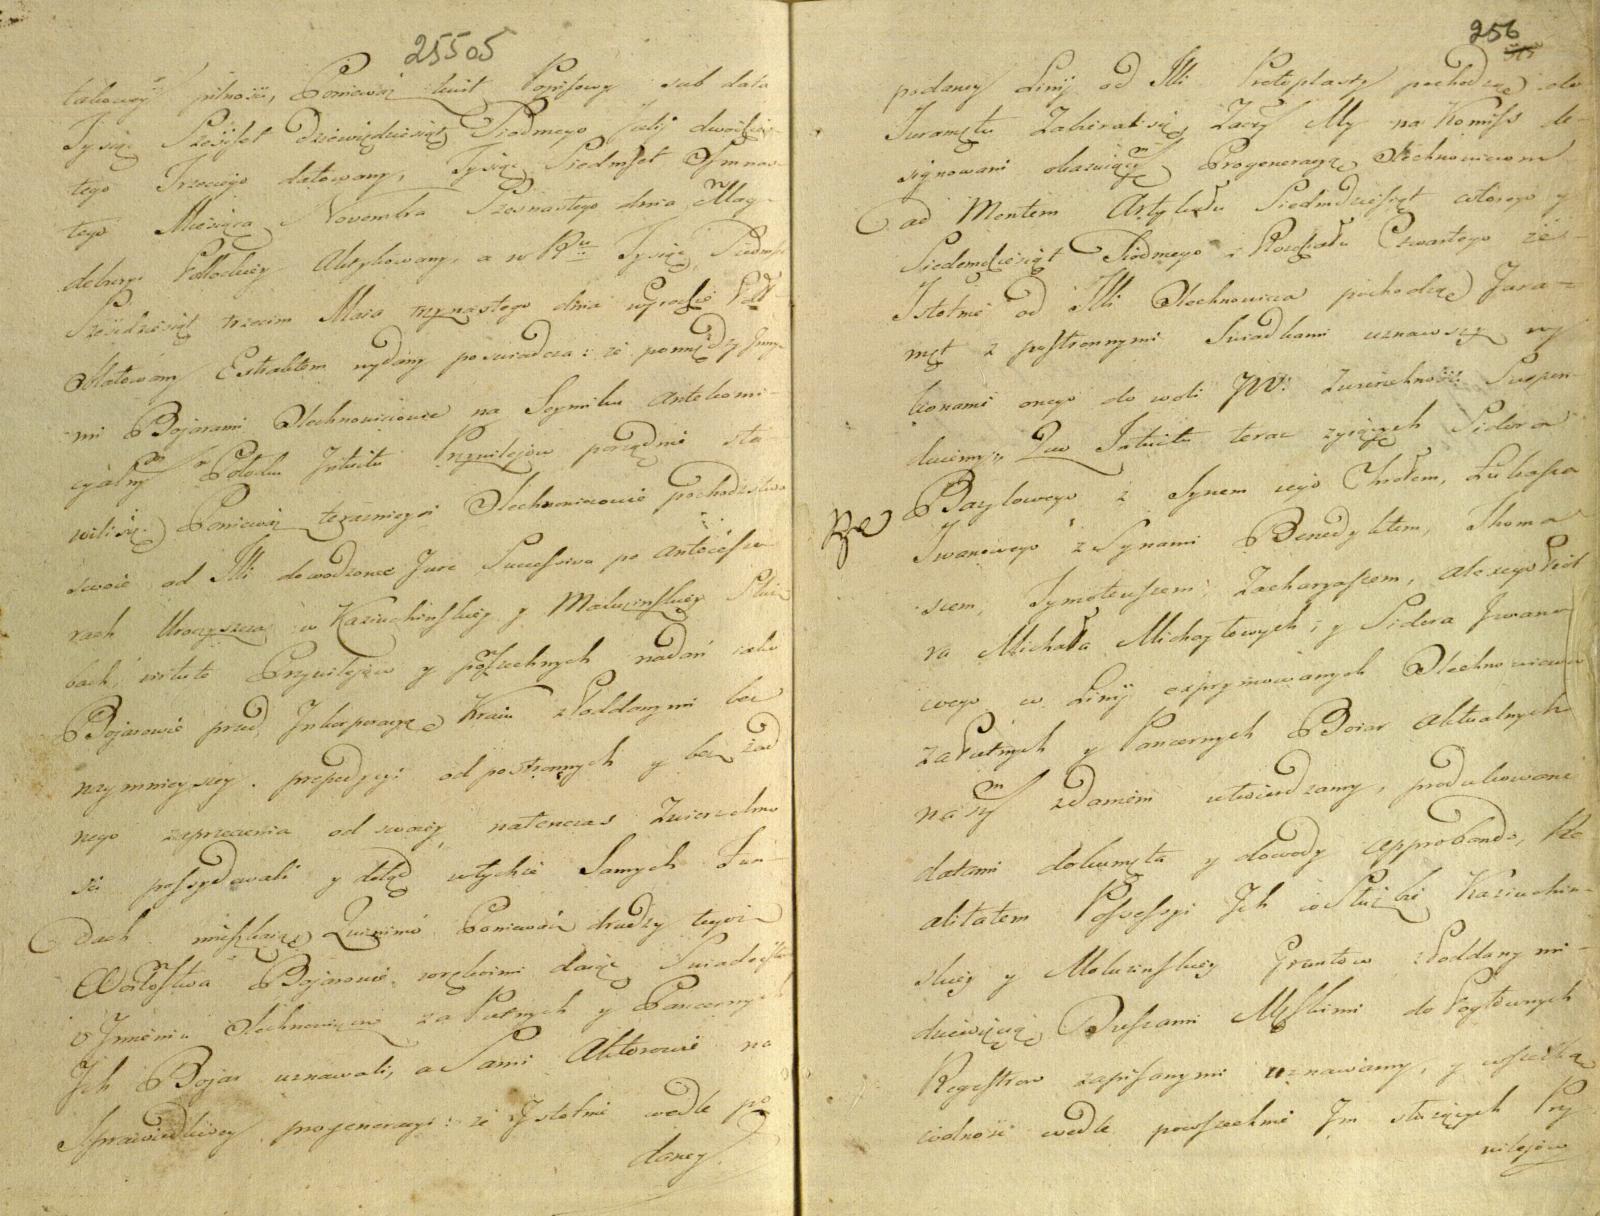 25505
takowey pilności, Poniewaz kwit Popisowy sub data
Tysiąc Sześćset Dziewiędziesiąt Siodmego Julij dwódzies-
tego Trzeciego datowany, Tysiąc Siedmset Osmnas-
tego Miesiąca Novembra Szesnastego dnia w Mag-
deburyi Połockiey Aktykowany, a w Rku Tysiąc Siedmset
Sześdziesiąt trzecim Maia trzynastego dnia w grodzie Poł
Oblatowany Extraktem wydany poswiadcza: że pomiędzy Innye
mi Bojarami Olechnowiczowie na Seymiku Antekomi-
cyalnym w Połocku Intuitu Przywilejów porządnie sta
wili się, Poniewaz teraznieysi Olechnowiczowie pochodzstwo
swoie od Illi dowodzonce Jure Successivo po Antecesso
rach Uroczyszcza w Kaziuchinskiey y Maluzinskiey Służ
bach, virtute Przywilejow y powszechnych nadań iako
Bojarowie przed Inkorporacyą Kraiu z Poddanymi bez
naymnieyszey prepedycyi od postronnych y bez żad
nego zaprzeczenia od swoiey natenczas Zwierzchno
ści possydowali y dotąd w tychże Samych Fun-
dach mieszkaią, Quinimo Poniewaz drudzy teyże
Włostwa Bojarowie zaręcznimi daiąc Swiadectwo
o Imieniu Olechnowiczow za Putnych y Pancernych
Ich Bojar uznawali, a Sami Aktorowie na
Sprawiedliwey progeneracyi: że Istotnie wedle po
daney
256
podaney Linij od Illi Protoplasty pochodzą do
Juramentu Zabierali się, Zaczym My na Komiss de-
sygnowani okazuiącym Progeneracyę Olechnowiczom
ad Mentem Artykułu Siedmdziesiąt wtorego y
Siedemdziesiąt Siodmego z Rozdziału Czwartego że
Istotnie od Illi Olechnowicza pochodzą Jura-
ment z postronnymi Swiadkami uznawszy wy
konanie onego do woli JW: Zwierzchności Suspen-
duiemy, Quo Intuitu teraz zyiących Sidora
Bazylowego z Synem iego Chwiłem, Łukasza
Iwanowego z Synami Benedyktem, Thoma
szem, Tymoteuszem, Zacharyaszem, Alexego Piot
ra Michała Michayłowych, y Sidora Iwano
wego w Linij exprymowanych Olechnowiczow
za Putnych y Pancernych Boiar Aktualnych
naszym zdaniem utwierdzamy, produkowane
datami dokumenta y dowody approbando, Re
alitatem Possessyi Ich w Służbie Kaziuchin-
skiey y Maluzinskiey Gruntow z Poddanymi
dziewięcią Duszami Męskimi do Pogłownych
Regestrow zapisanymi uznawamy, y wszelką
wolność wedle powszechnie Im służących Przy
wilejow